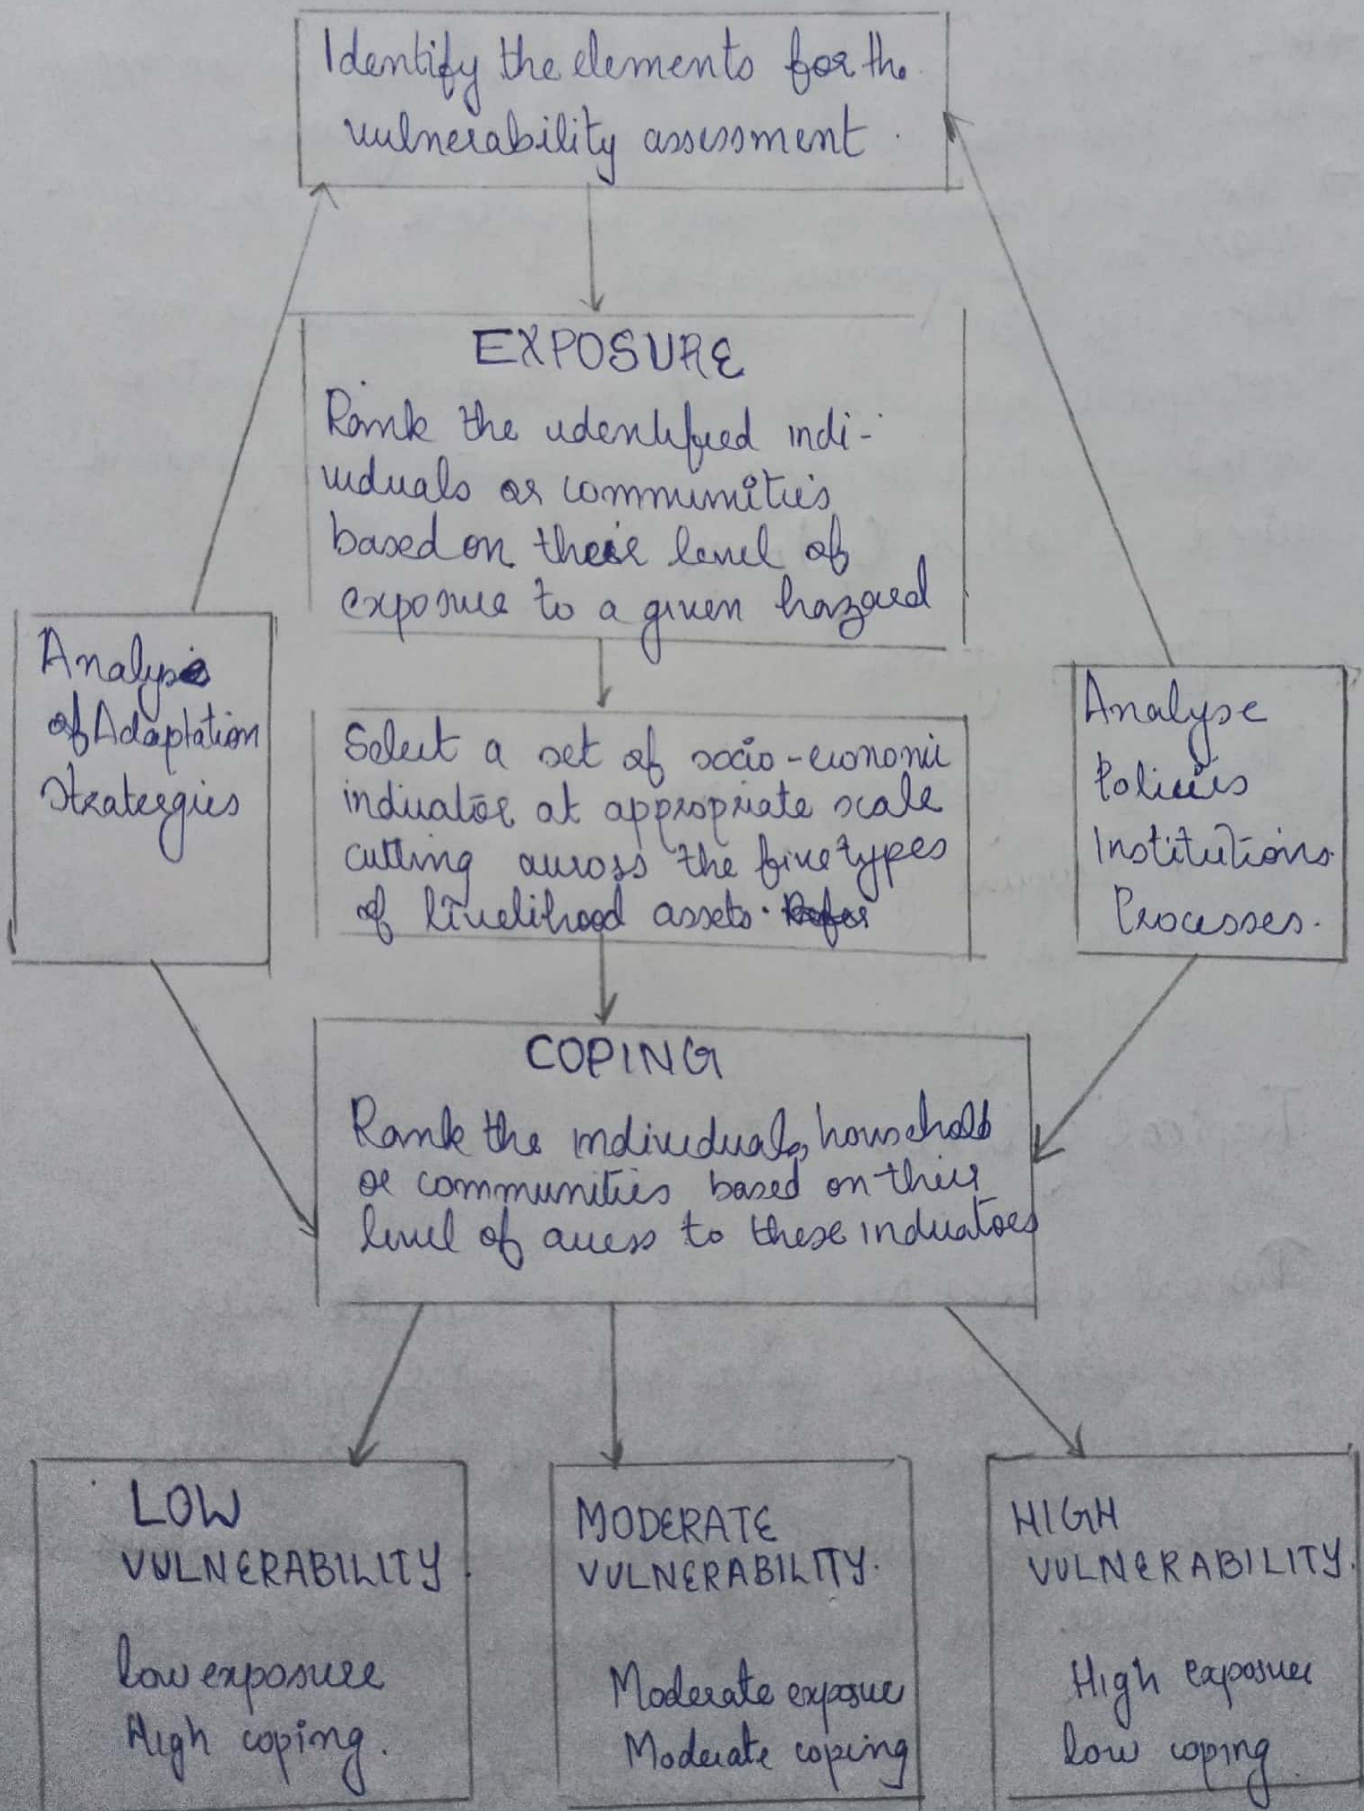 Identify the elements for the
vulnerability assessment.
EXPOSURE
Rank the identified indi-
viduals or communities
based on their level of
exposure to a given hazard
Analyse
of Adaptation
Stratergies
Select a set of socio-economic
indicator at appropriate scale
cutting across the five types
of livelihood assets.
Analyse
Policies
Institutions
Processes.
COPING
Rank the individuals, household
or communities based on their
level of access to these indicators
LOW
VULNERABILITY
low exposure
High coping.
MODERATE
VULNERABILITY.
Moderate exposure
Moderate coping
HIGH
VULNERABILITY.
High exposure
low coping